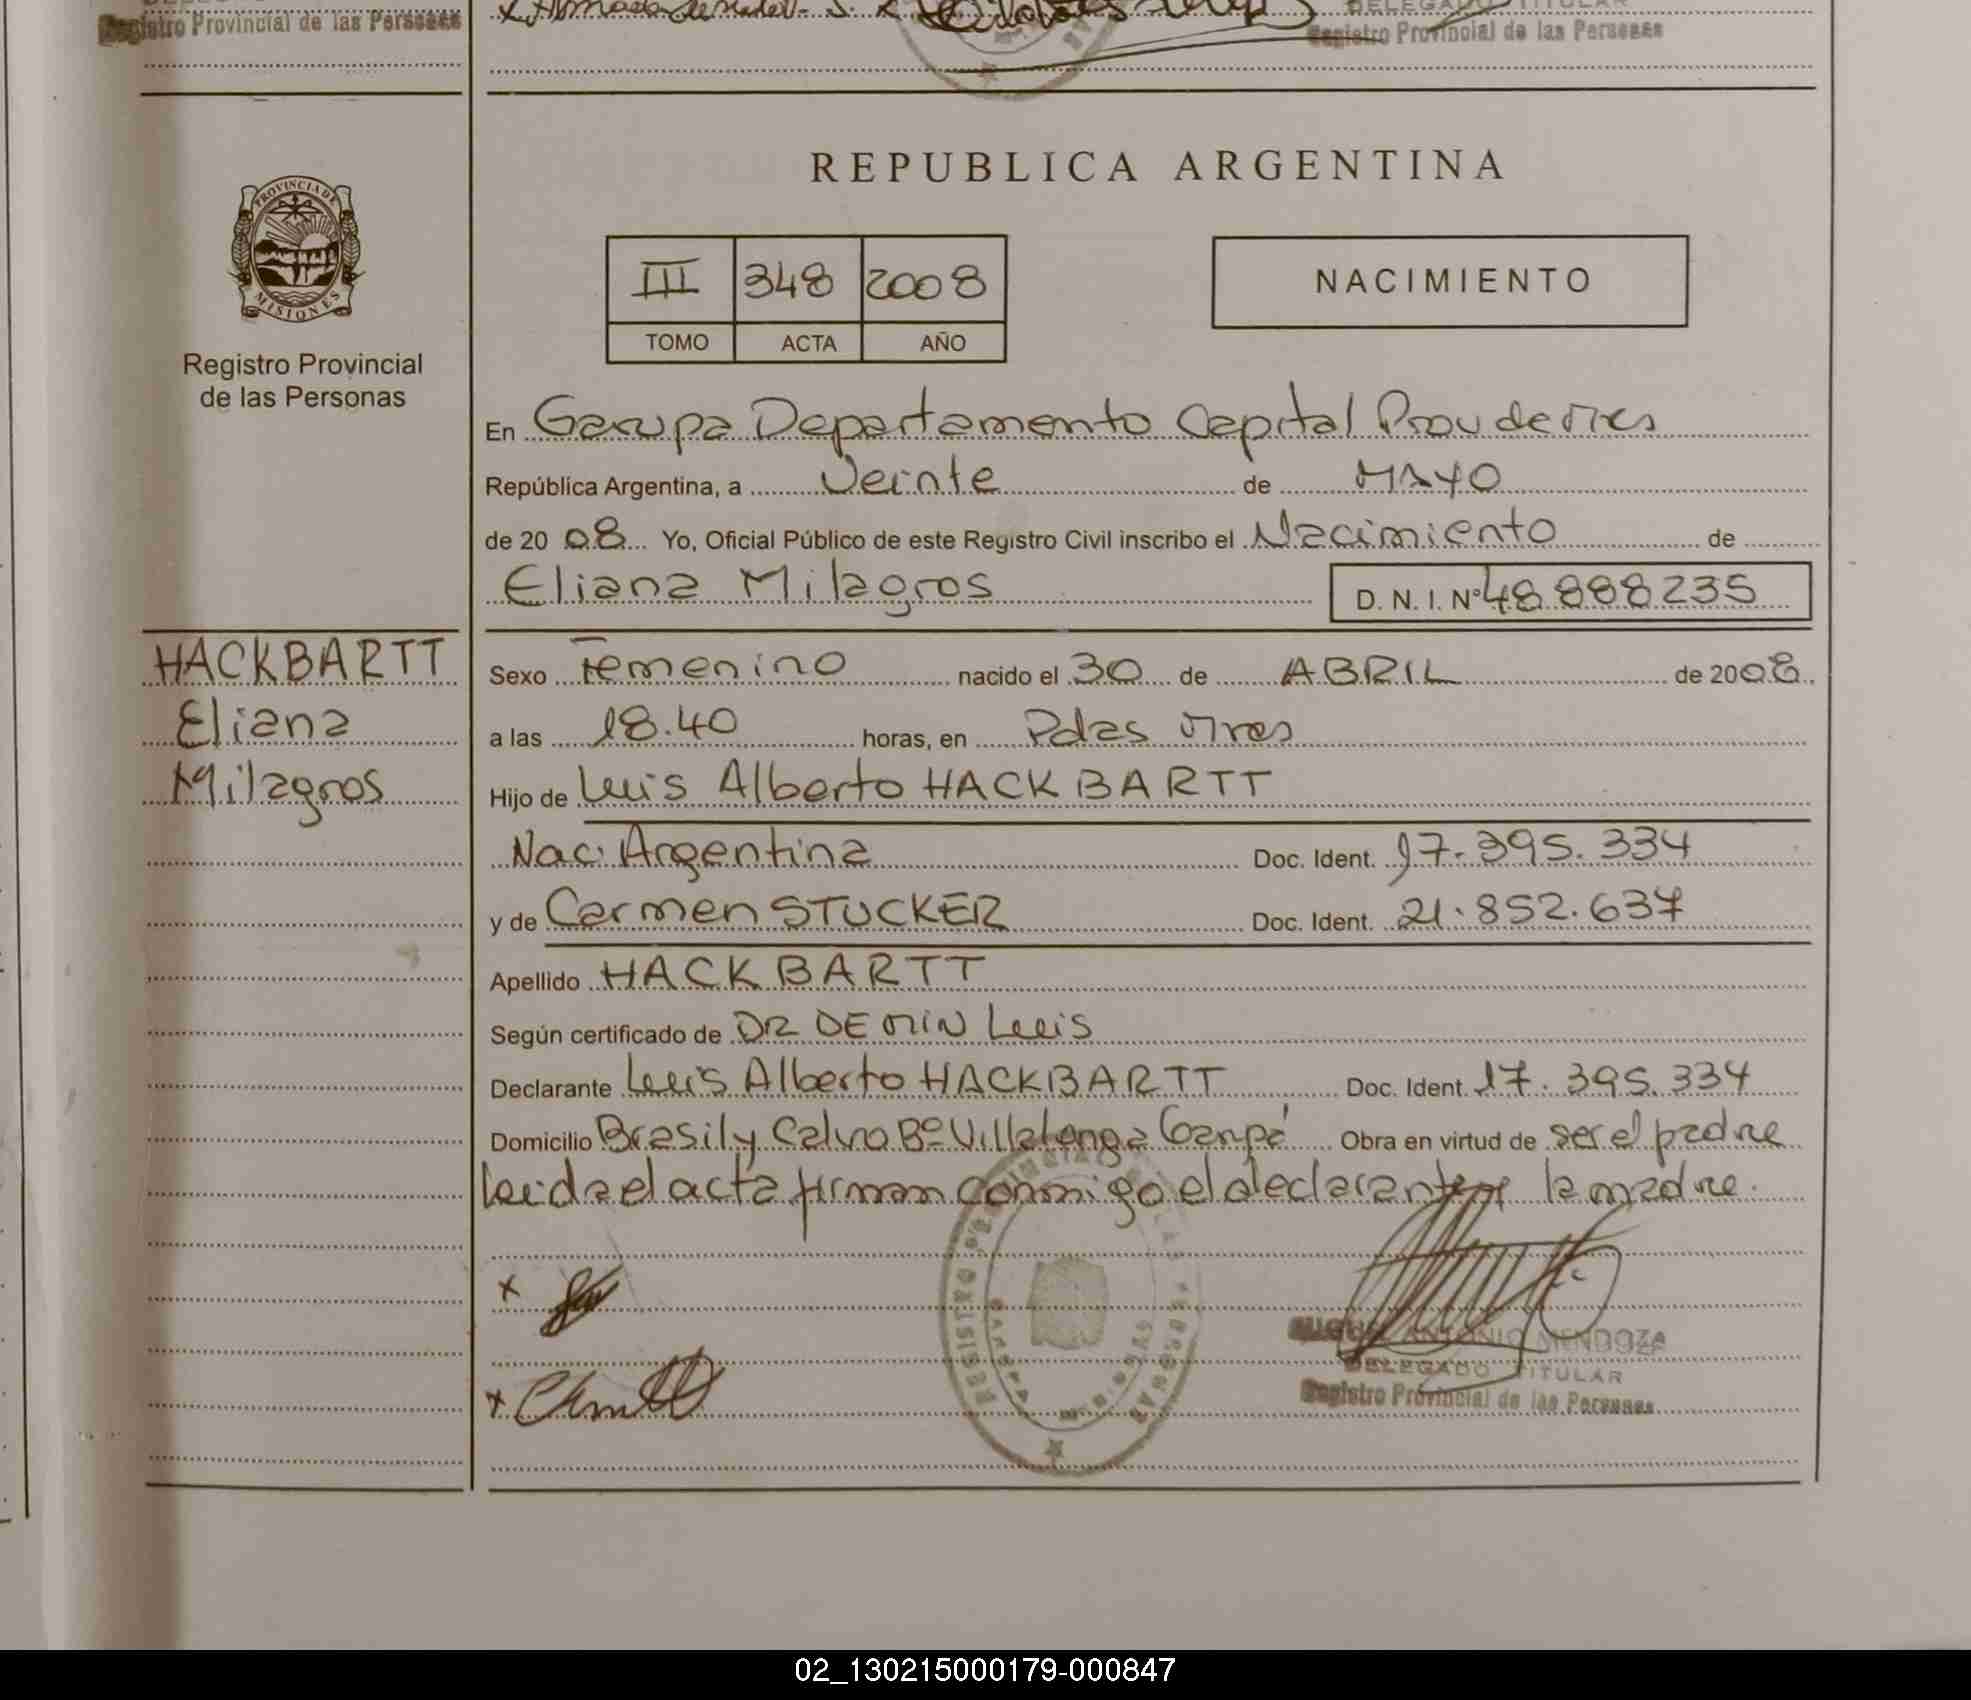 Registro Provincial de las Personas
DELEGADO TITULAR
Registro Provincial de las Personas
REPUBLICA ARGENTINA
PROVINCIA DE
MISIONES
Registro Provincial
de las Personas
III 348 2008
TOMO ACTA AÑO
NACIMIENTO
En Garupa Departamento Capital Prov de Mnes
República Argentina, a Veinte de MAYO
de 20 08 Yo, Oficial Público de este Registro Civil inscribo el Nacimiento de
Eliana Milagros D. N. I. Nº 48 888 235
HACKBARTT
Eliana
Milagros
Sexo Femenino nacido el 30 de ABRIL de 2008
a las 18.40 horas, en Pdas Mnes
Hijo de Luis Alberto HACKBARTT
Nac. Argentina Doc. Ident. 17.395.334
y de Carmen STUCKER Doc. Ident. 21.852.637
Apellido HACKBARTT
Según certificado de DR DEMIN Luis
Declarante Luis Alberto HACKBARTT Doc. Ident. 17.395.334
Domicilio Brasil y Calvo Bº Villalonga Garupá Obra en virtud de ser el padre
leida el acta firman conmigo el declarante y la madre.
ANTONIO MENDOZA
DELEGADO TITULAR
Registro Provincial de las Personas
02_130215000179-000847